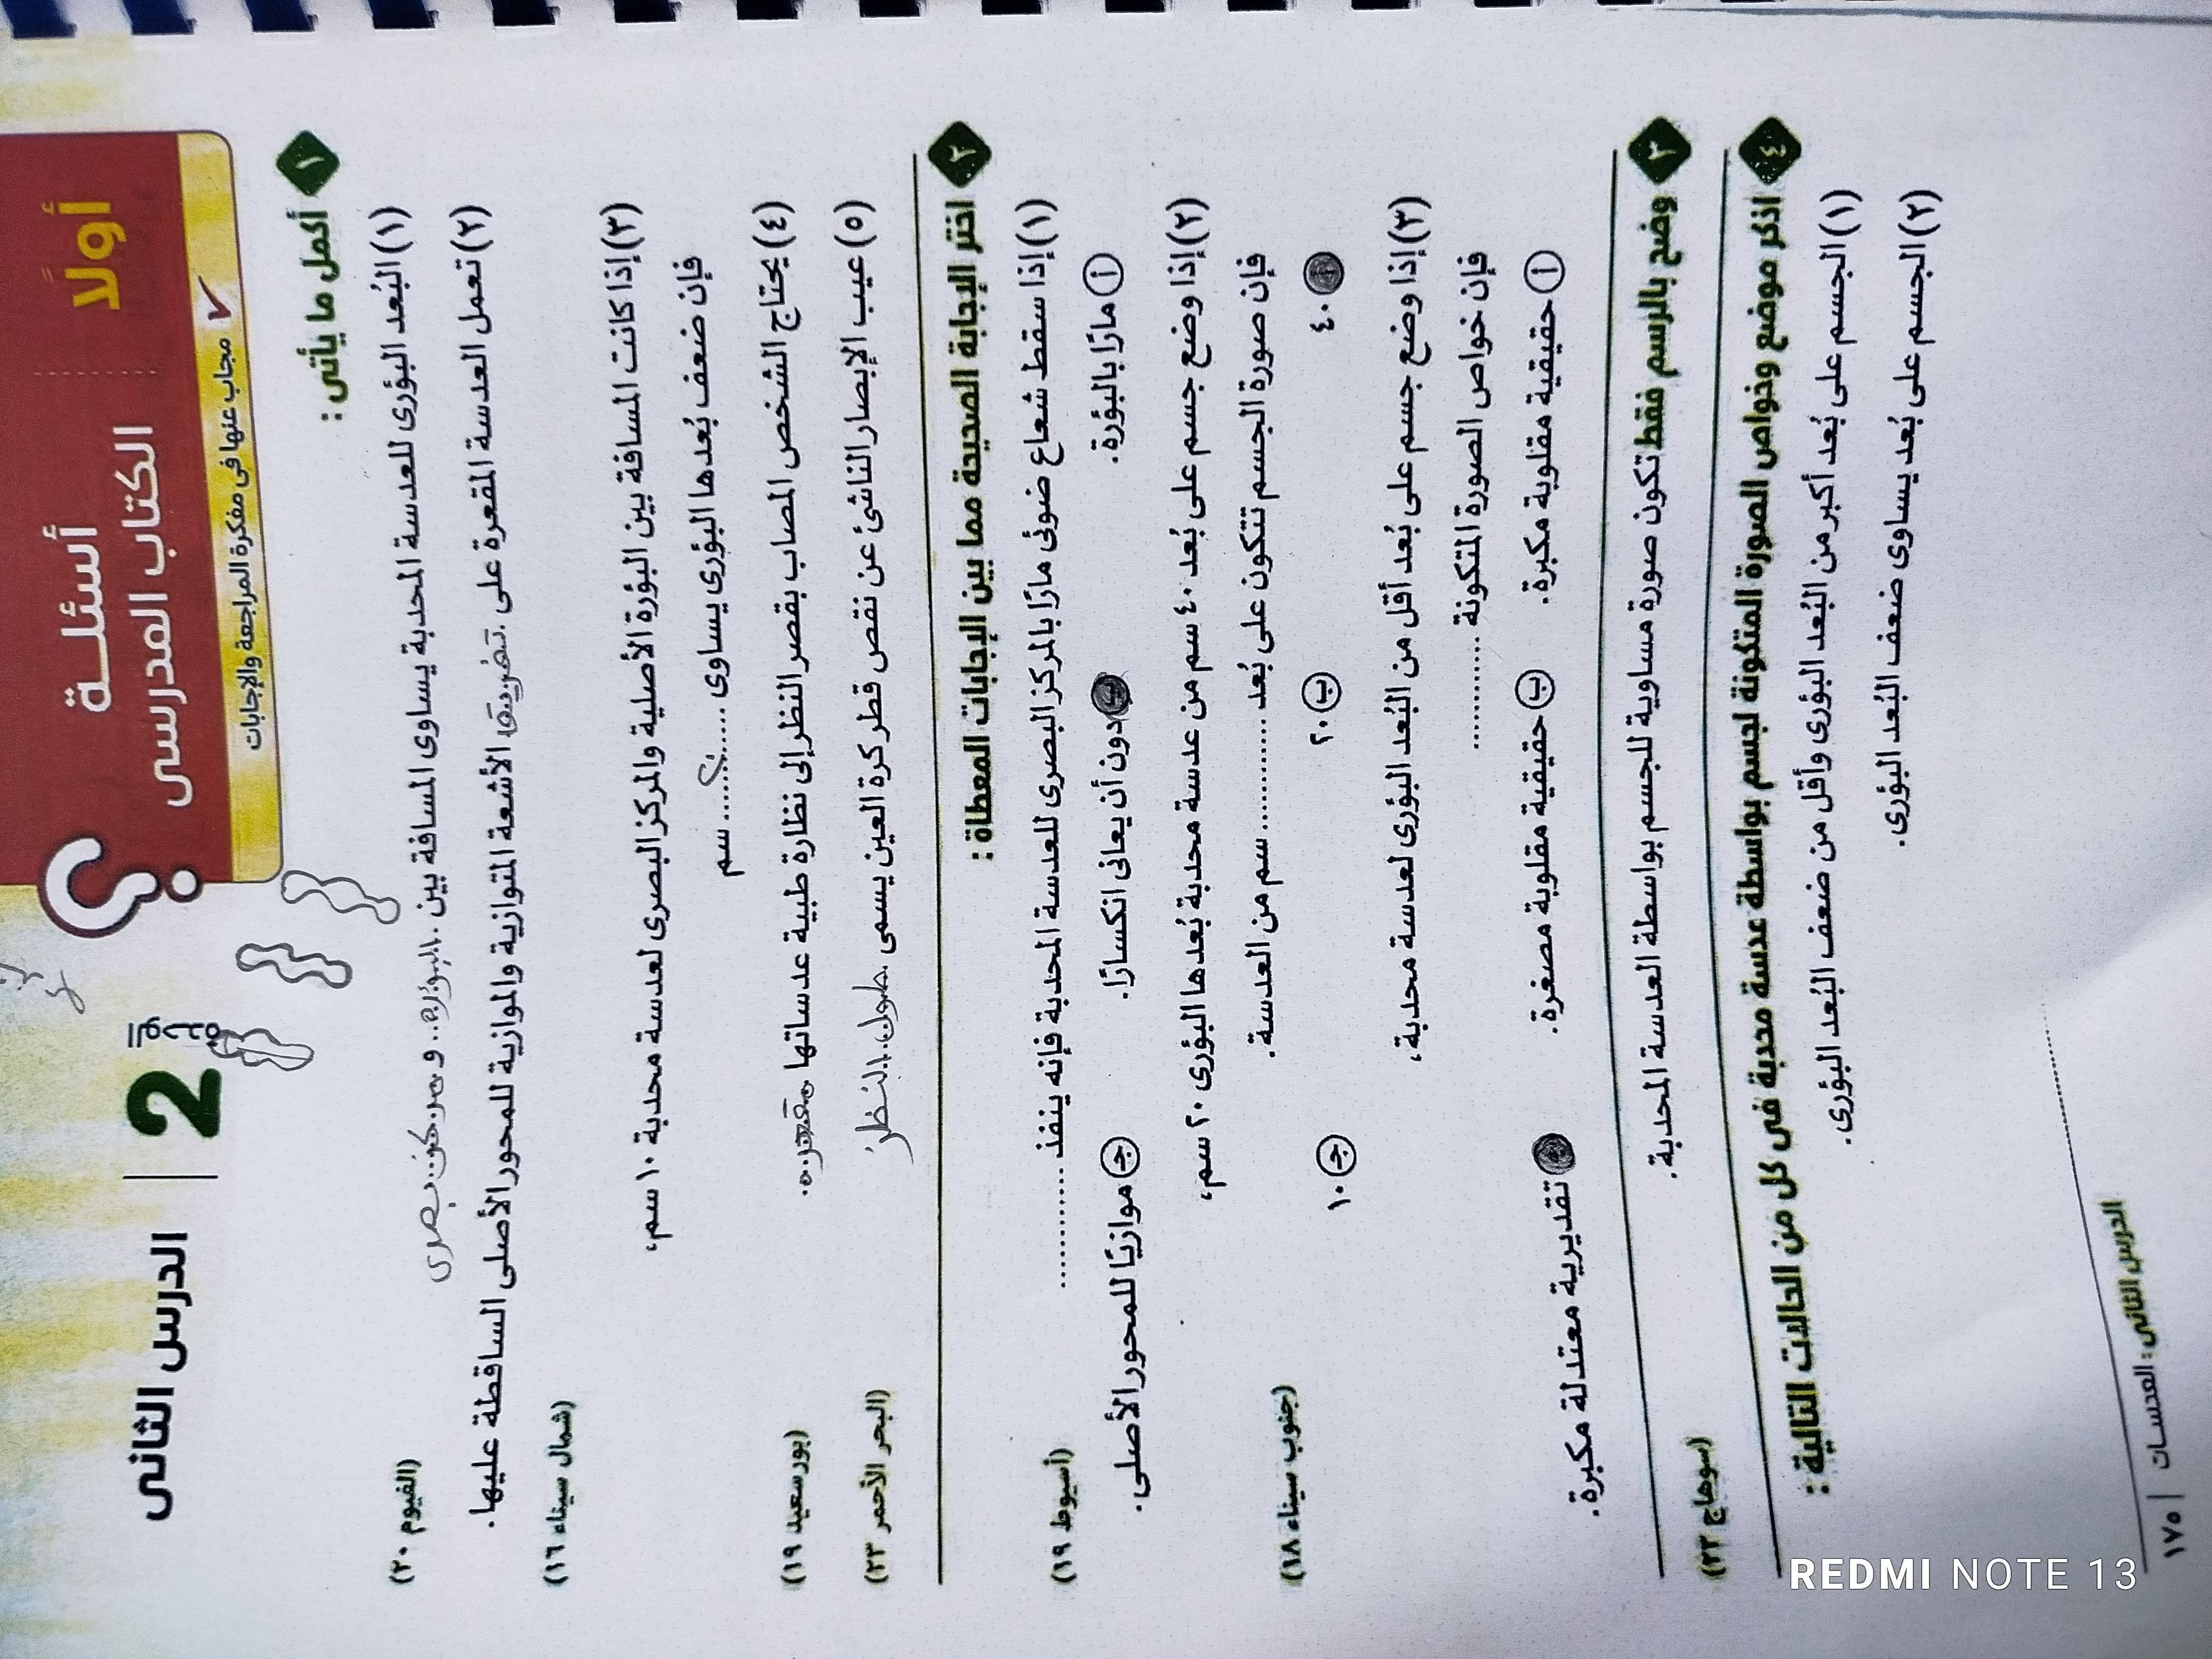 الدرس الثانى | 2
أسئلــة
الكتاب المدرسى
أولًا
مجاب عنها فى مفكرة المراجعة والإجابات
١ أكمل ما يأتى :
(١) البُعد البؤرى للعدسة المحدبة يساوى المسافة بين البؤرة و مركز بصرى (الفيوم ٢٠)
(٢) تعمل العدسة المقعرة على تفريق الأشعة المتوازية والموازية للمحور الأصلى الساقطة عليها.
(شمال سيناء ١٦)
(٣) إذا كانت المسافة بين البؤرة الأصلية والمركز البصرى لعدسة محدبة ١٠ سم،
فإن ضعف بُعدها البؤرى يساوى ............ سم
(٤) يحتاج الشخص المصاب بقصر النظر إلى نظارة طبية عدساتها مقعرة. (بورسعيد ١٩)
(٥) عيب الإبصار الناشئ عن نقص قطر كرة العين يسمى طول النظر (البحر الأحمر ٢٣)
٢ اختر الإجابة الصحيحة مما بين الإجابات المعطاة :
(١) إذا سقط شعاع ضوئى مارًا بالمركز البصرى للعدسة المحدبة فإنه ينفذ ............ (أسيوط ١٩)
أ مارًا بالبؤرة. ب دون أن يعانى انكسارًا. ج موازيًا للمحور الأصلى.
(٢) إذا وضع جسم على بُعد ٤٠ سم من عدسة محدبة بُعدها البؤرى ٢٠ سم،
فإن صورة الجسم تتكون على بُعد ............ سم من العدسة. (جنوب سيناء ١٨)
أ ٤٠ ب ٢٠ ج ١٠
(٣) إذا وضع جسم على بُعد أقل من البُعد البؤرى لعدسة محدبة،
فإن خواص الصورة المتكونة ............
أ حقيقية مقلوبة مكبرة. ب حقيقية مقلوبة مصغرة. ج تقديرية معتدلة مكبرة.
٣ وضح بالرسم فقط تكون صورة مساوية للجسم بواسطة العدسة المحدبة. (سوهاج ٢٣)
٤ اذكر موضع وخواص الصورة المتكونة لجسم بواسطة عدسة محدبة فى كل من الحالات التالية :
(١) الجسم على بُعد أكبر من البُعد البؤرى وأقل من ضعف البُعد البؤرى.
(٢) الجسم على بُعد يساوى ضعف البُعد البؤرى.
١٧٥ | الدرس الثانى : العدسـات
REDMI NOTE 13